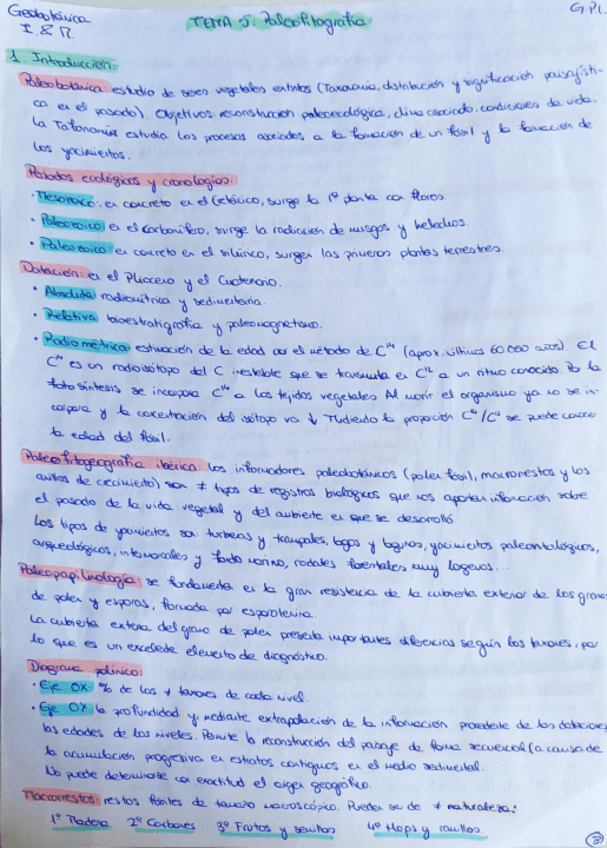 Geobotánica
I. & M.
TEMA 5: Paleofitografía
G.P.L.
1. Introducción:
Paleobotánica: estudio de seres vegetales extintos (Taxonomía, distribución y significación paisajísti-
ca en el pasado). Objetivos: reconstrucción paleoecológica, clima asociado, condiciones de vida.
La Tafonomía estudia los procesos asociados a la formación de un fósil y la formación de
los yacimientos.
Periodos ecológicos y cronologías:
· Mesozoico: en concreto en el Cretácico, surge la 1ª planta con flores.
· Paleozoico: en el carbonífero, surge la radiación de musgos y helechos.
· Paleozoico: en concreto en el silúrico, surgen las primeras plantas terrestres.
Datación: en el Plioceno y el Cuaternario.
• Absoluta: radiométrica y sedimentaria.
• Relativa: bioestratigrafía y paleomagnetismo.
• Radiométrica: estimación de la edad por el método de C¹⁴ (aprox. últimos 60.000 años). El
C¹⁴ es un radioisótopo del C inestable que se transmuta en C¹² a un ritmo conocido. Por la
fotosíntesis se incorpora C¹⁴ a los tejidos vegetales. Al morir el organismo ya no se in-
corpora y la concentración del isótopo va ↓. Midiendo la proporción C¹⁴/C¹² se puede conocer
la edad del fósil.
Paleofitogeografía ibérica: los informadores paleobotánicos (polen fósil, macrorrestos y los
anillos de crecimiento) son ≠ tipos de registros biológicos que nos aportan información sobre
el pasado de la vida vegetal y del ambiente en que se desarrolló.
Los tipos de yacimientos son turberas y trampales, lagos y lagunas, yacimientos paleontológicos,
arqueológicos, intermareales y fondo marino, rodales forestales muy longevos...
Paleopapilinología: se fundamenta en la gran resistencia de la cubierta exterior de los granos
de polen y esporas, formada por esporolenina.
La cubierta externa del grano de polen presenta importantes diferencias según los taxones, por
lo que es un excelente elemento de diagnóstico.
Diagrama polínico:
· Eje OX: % de los ≠ taxones de cada nivel.
· Eje OY: la profundidad y, mediante extrapolación de la información procedente de las dataciones,
las edades de los niveles. Permite la reconstrucción del paisaje de forma secuencial (a causa de
la acumulación progresiva en estratos contiguos en el medio sedimental.
No puede determinarse con exactitud el origen geográfico.
Macrorrestos: restos fósiles de tamaño macroscópico. Pueden ser de ≠ naturaleza:
1º Madera 2º Carbones 3º Frutos y semillas 4º Hojas y ramillos.
3